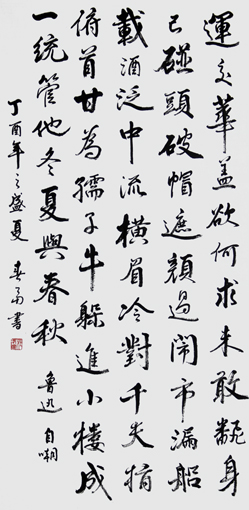 運交華蓋欲何求未敢翻身
已碰頭破帽遮顏過鬧市漏船
載酒泛中流橫眉冷對千夫指
俯首甘為孺子牛躲進小樓成
一統管他冬夏與春秋 魯迅 自嘲
丁酉年之盛夏 春 書